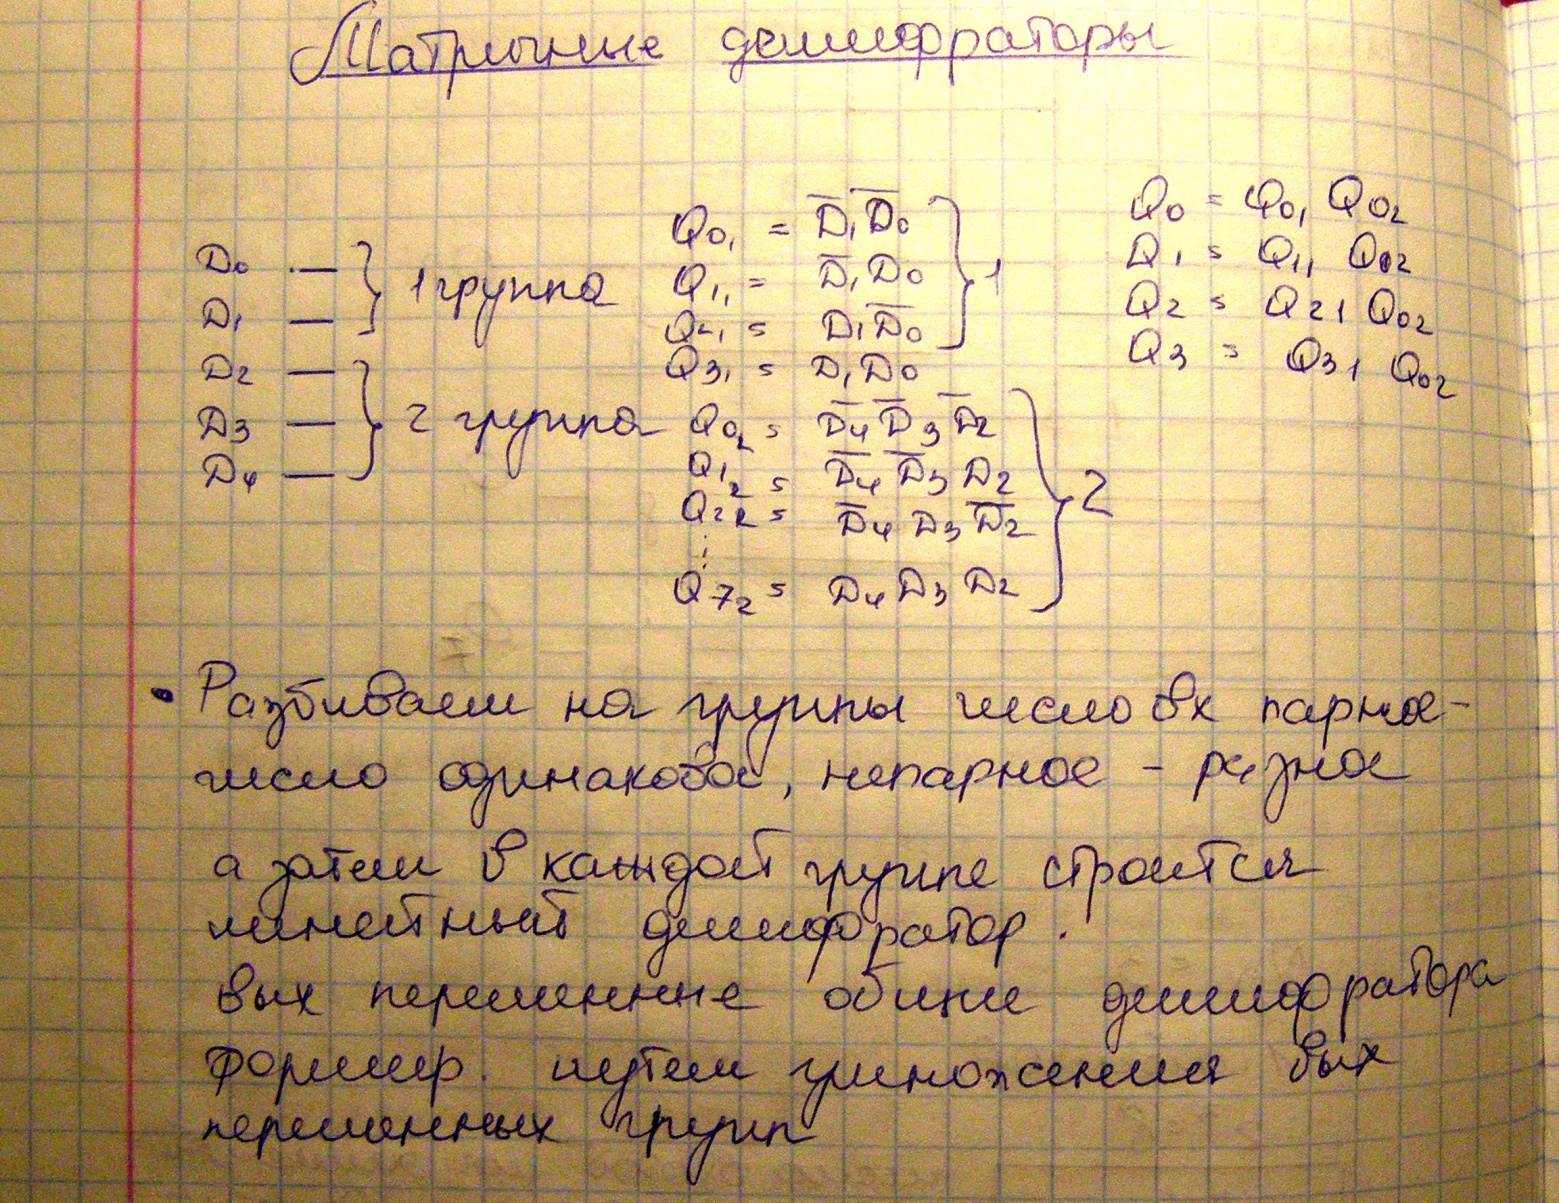 Матричные дешифраторы
D0 —
D1 —
} 1 группа
D2 —
D3 —
D4 —
} 2 группа
Q01 = D̅1 D̅0
Q11 = D̅1 D0
Q21 = D1 D̅0
Q31 = D1 D0
} 1
Q02 = D̅4 D̅3 D̅2
Q12 = D̅4 D̅3 D2
Q22 = D̅4 D3 D̅2
⋮
Q72 = D4 D3 D2
} 2
Q0 = Q01 Q02
Q1 = Q11 Q02
Q2 = Q21 Q02
Q3 = Q31 Q02
• Разбиваем на группы число вх парное -
число одинаковое, непарное - разное
а затем в каждой группе строится
линейный дешифратор.
вых переменные общие дешифратора
формир. путем умножения вых
переменных групп